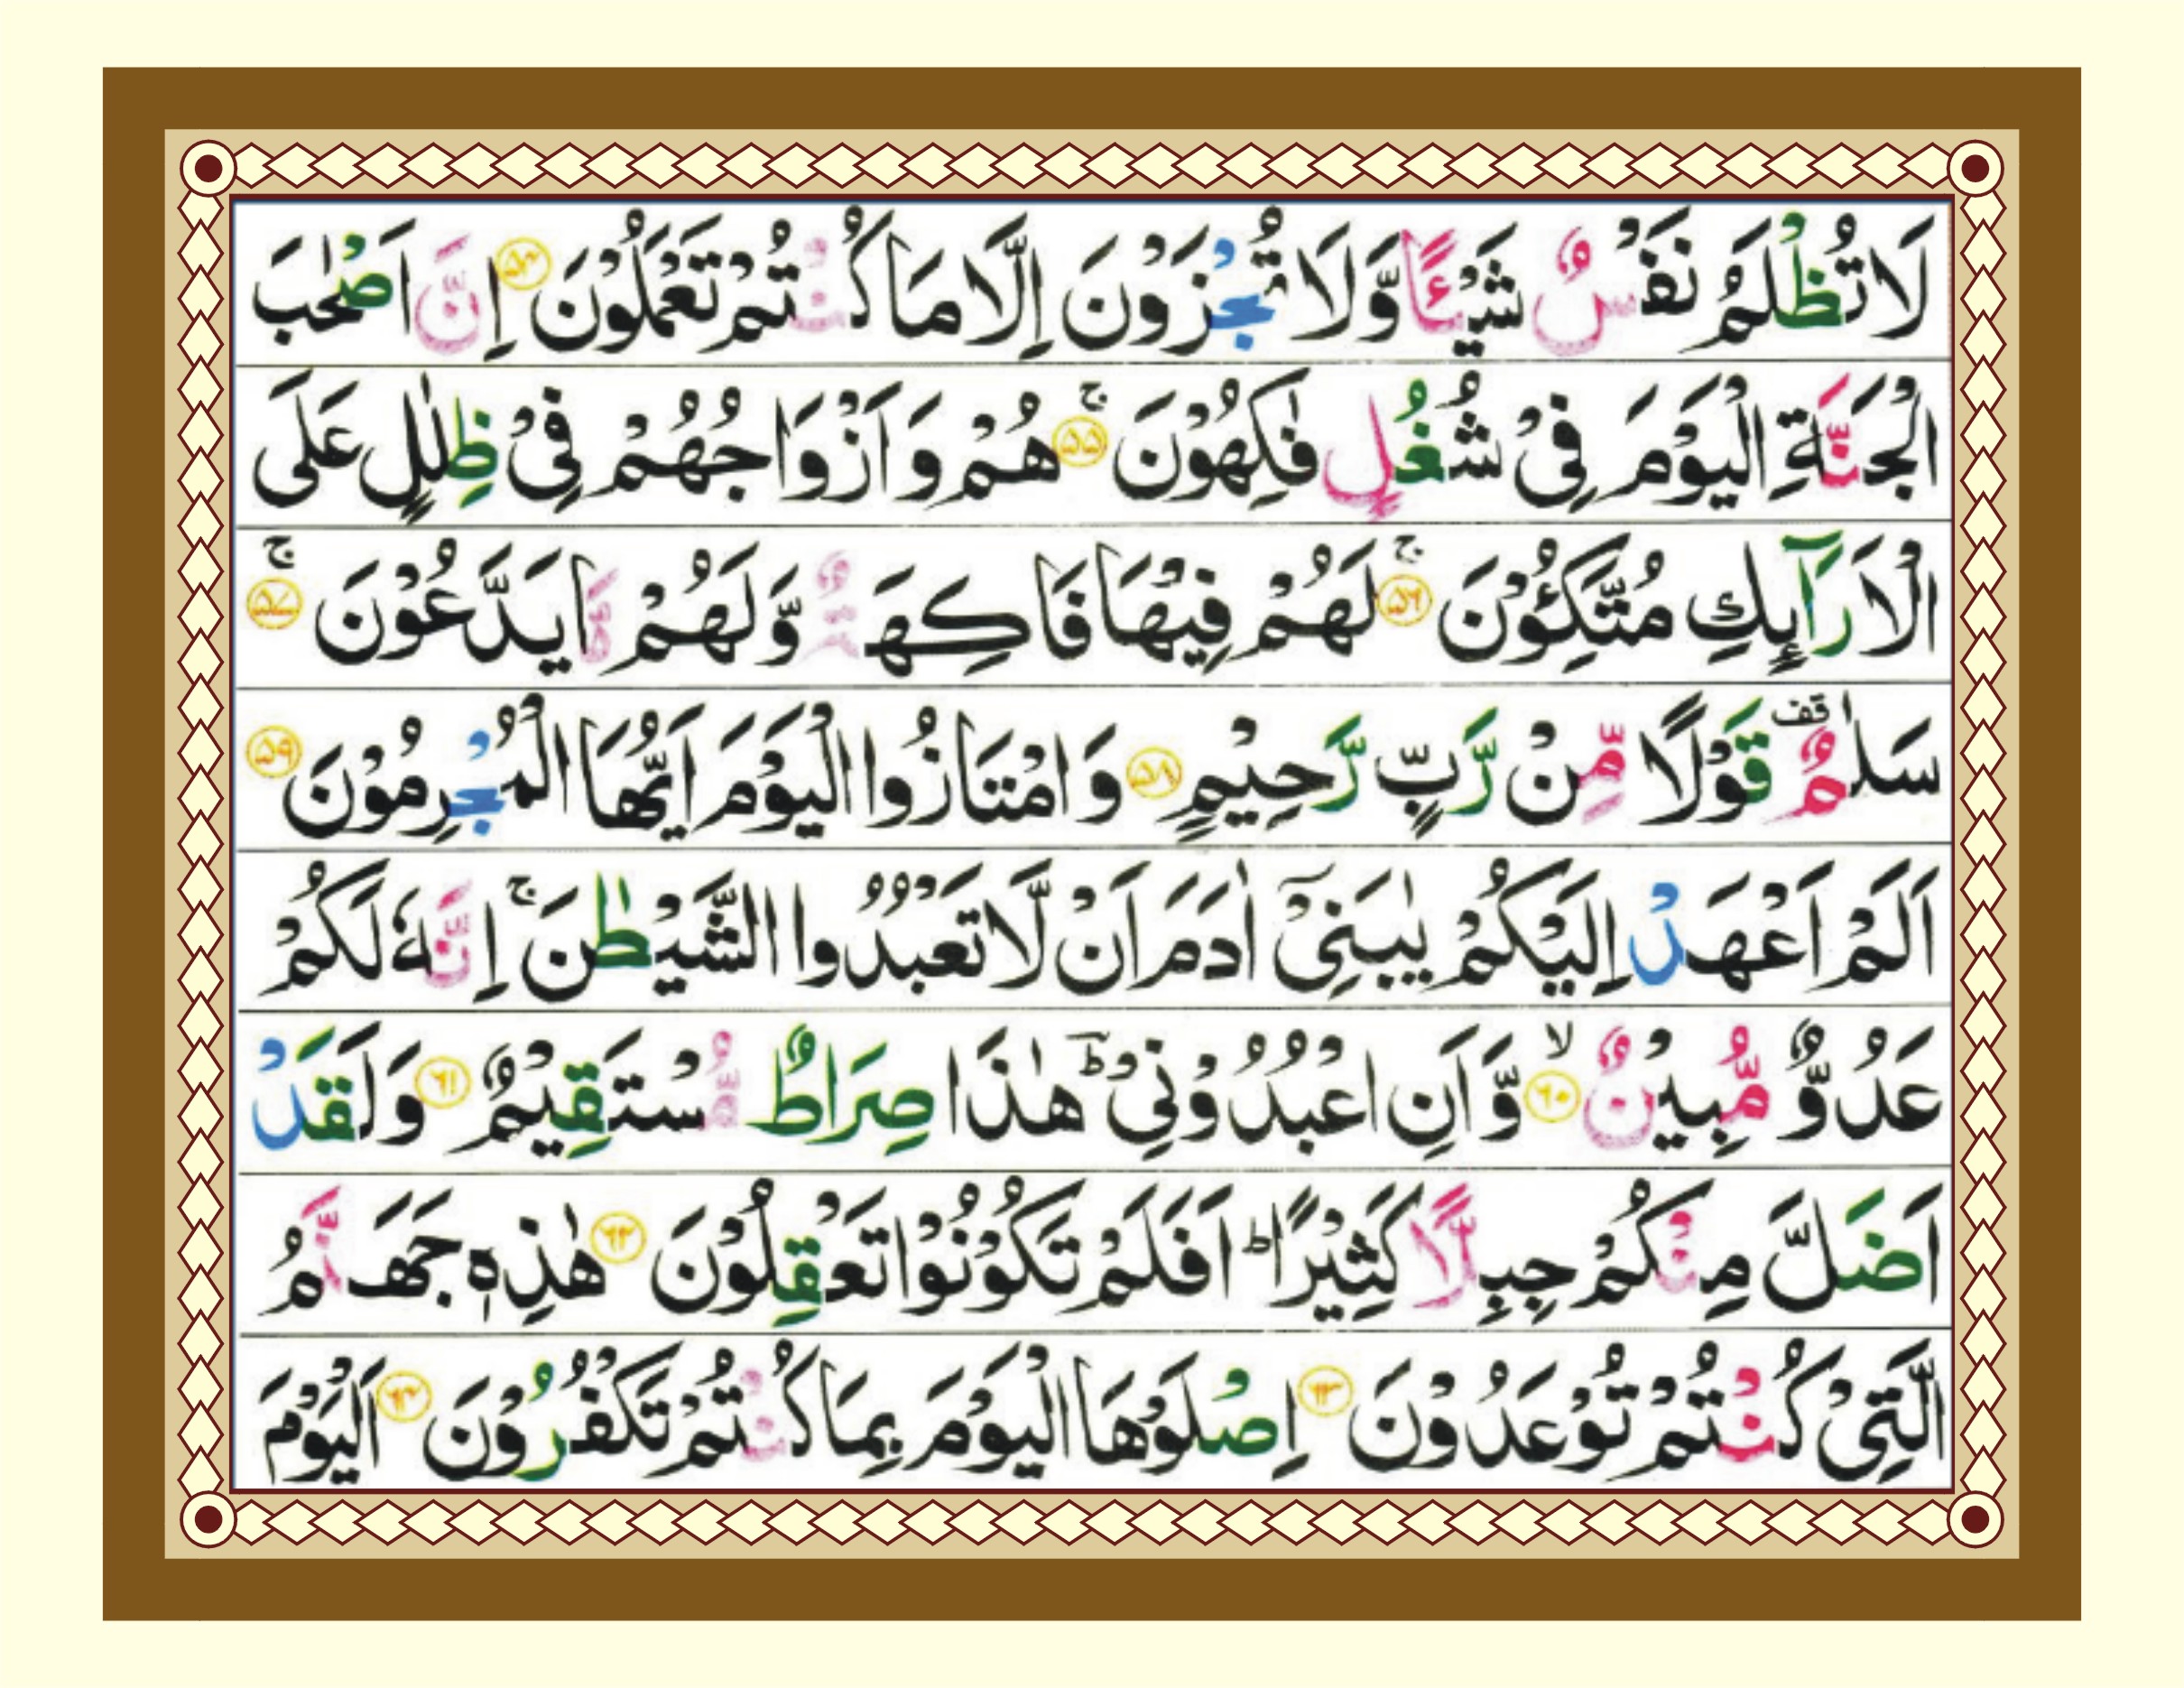 لَا تُظْلَمُ نَفْسٌ شَيْـًٔا وَّلَا تُجْزَوْنَ اِلَّا مَا كُنْتُمْ تَعْمَلُوْنَ ۝۵۴ اِنَّ اَصْحٰبَ
الْجَنَّةِ الْيَوْمَ فِىْ شُغُلٍ فٰكِهُوْنَ ۚ۝۵۵ هُمْ وَ اَزْوَاجُهُمْ فِىْ ظِلٰلٍ عَلَى
الْاَرَآىِٕكِ مُتَّكِـُٔوْنَ ۚ۝۵۶ لَهُمْ فِيْهَا فَاكِهَةٌ وَّلَهُمْ مَّا يَدَّعُوْنَ ۚ۝۵۷
سَلٰمٌ ۟قف قَوْلًا مِّنْ رَّبٍّ رَّحِيْمٍ ۝۵۸ وَ امْتَازُوا الْيَوْمَ اَيُّهَا الْمُجْرِمُوْنَ ۝۵۹
اَلَمْ اَعْهَدْ اِلَيْكُمْ يٰبَنِىْٓ اٰدَمَ اَنْ لَّا تَعْبُدُوا الشَّيْطٰنَ ۚ اِنَّهٗ لَكُمْ
عَدُوٌّ مُّبِيْنٌ ۙ۝۶۰ وَّ اَنِ اعْبُدُوْنِىْ ؕ هٰذَا صِرَاطٌ مُّسْتَقِيْمٌ ۝۶۱ وَ لَقَدْ
اَضَلَّ مِنْكُمْ جِبِلًّا كَثِيْرًا ؕ اَفَلَمْ تَكُوْنُوْا تَعْقِلُوْنَ ۝۶۲ هٰذِهٖ جَهَنَّمُ
الَّتِىْ كُنْتُمْ تُوْعَدُوْنَ ۝۶۳ اِصْلَوْهَا الْيَوْمَ بِمَا كُنْتُمْ تَكْفُرُوْنَ ۝۶۴ اَلْيَوْمَ